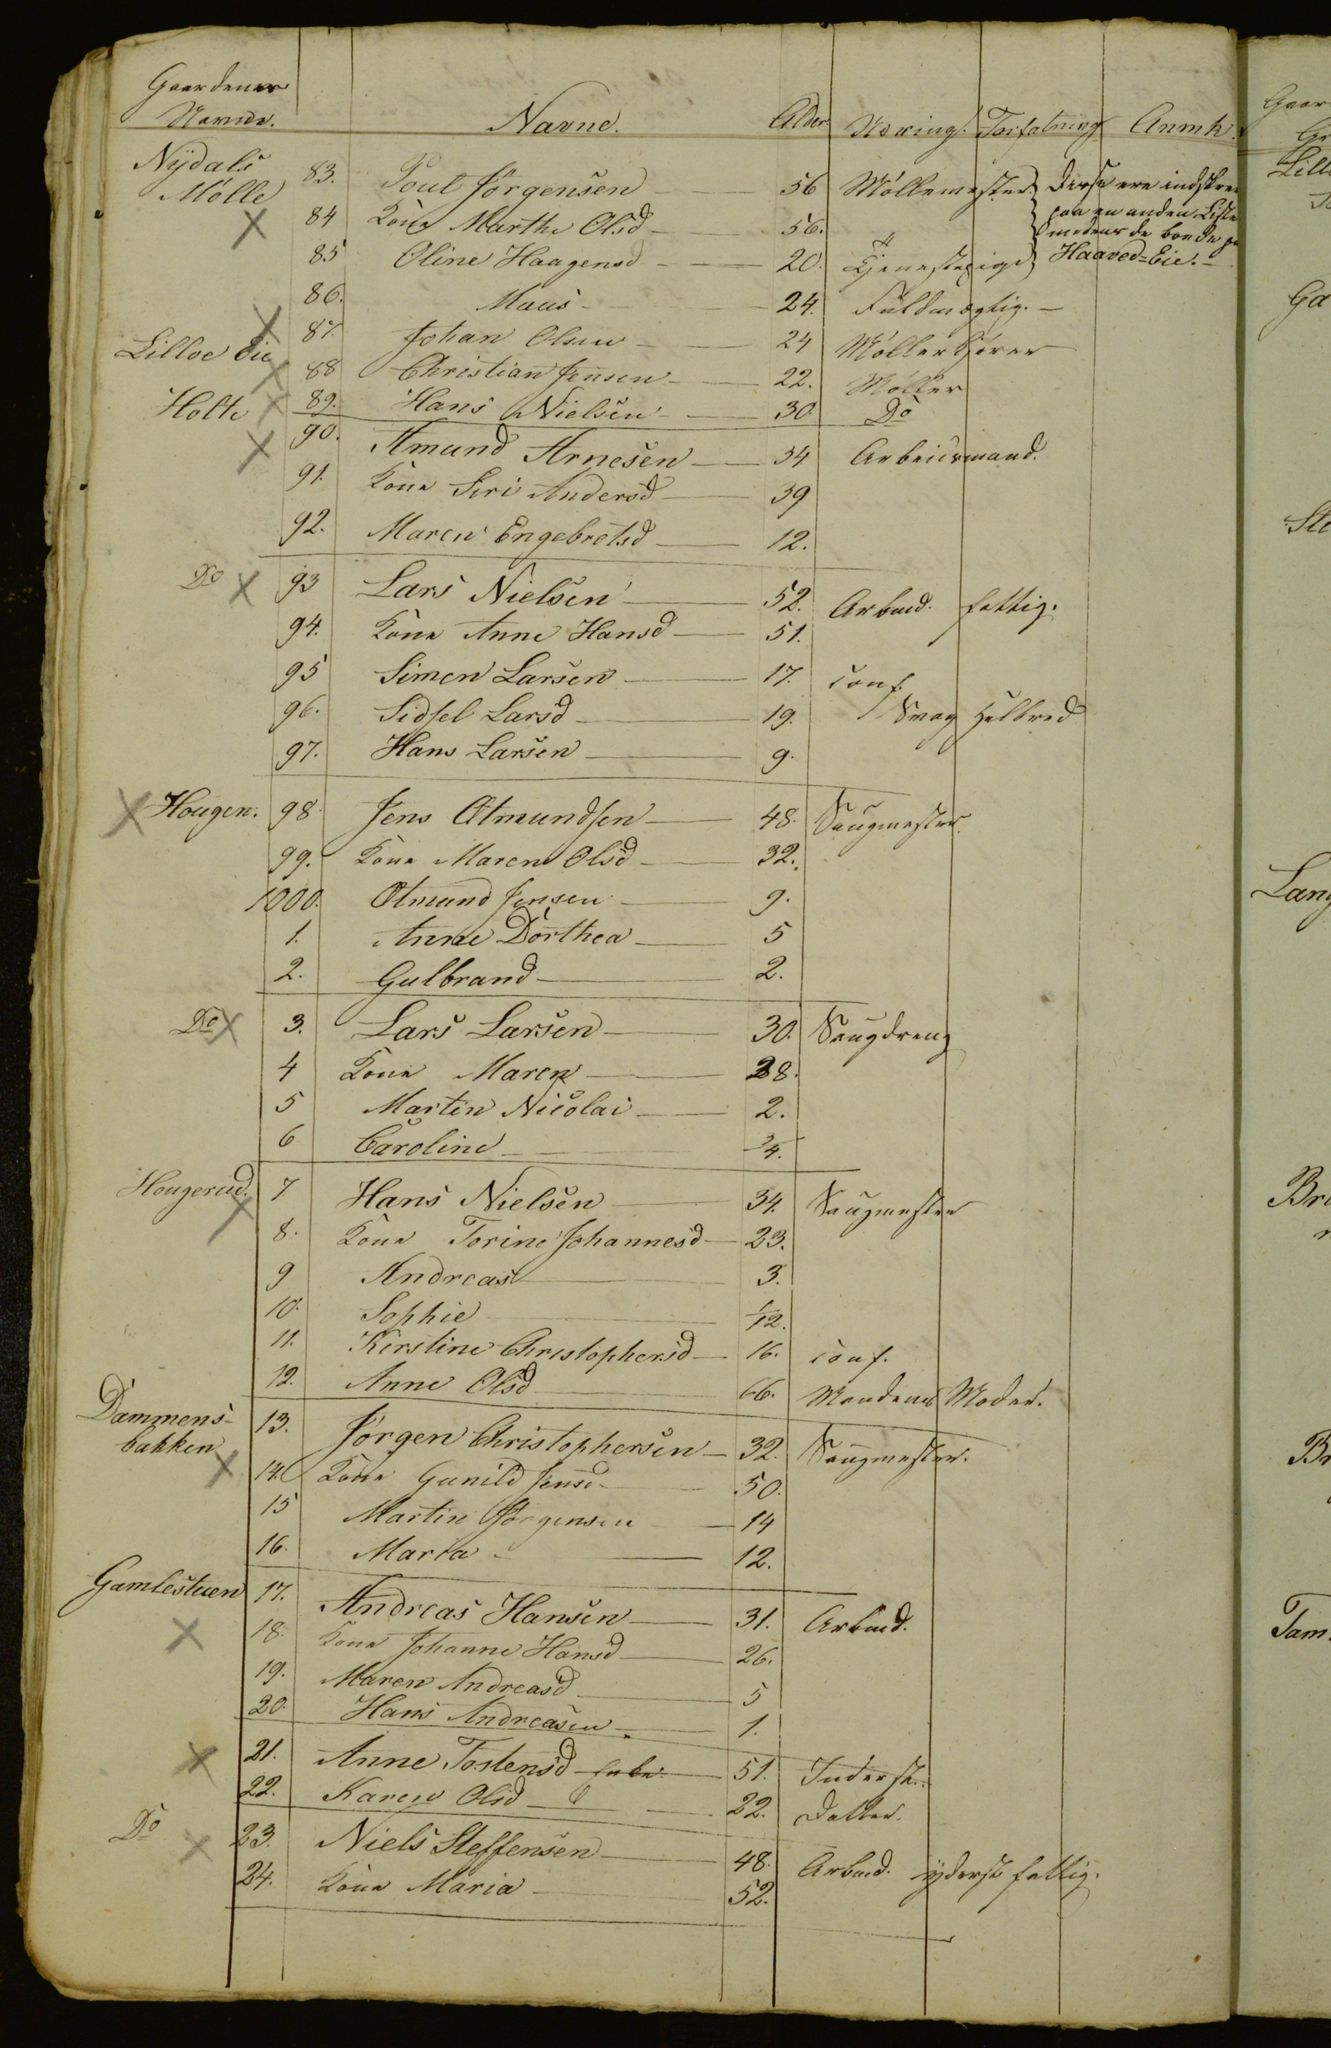 Gaardenes
Navne. Navne. Alder Næring. Forfatning Anmk.
Nÿdals 83. Poul Jörgensen 56 Möllemester Disse ere indskre
Mölle 84 Kone Marthe Olsd 56. paa en anden Liste
medens de boede pa
85 Oline Haagensd 20. Tjenestepige Haaved-Eie.
86. Maus 24. Fuldmægtig.
87. Johan Olsen 24 Möllerkjörer
Lilloe Eie 88 Christian Jensen 22. Möller
Holte 89. Hans Nielsen 30 Do
90. Amund Arnesen 34 Arbeidsmand.
91. Kone Siri Andersd 39
92. Maren Engebretsd 12.
Do 93 Lars Nielsen 52. Arbmd. fattig.
94. Kone Anne Hansd 51.
95 Simen Larsen 17. conf.
96. Sidsel Larsd 19. Svag Helbred
97. Hans Larsen 9.
Hougen. 98. Jens Amundsen 48. Saugmester
99. Kone Maren Olsd 32.
1000. Amund Jensen 9.
1. Anne Dorthea 5
2. Gulbrand 2.
Do 3. Lars Larsen 30. Saugdreng
4 Kone Maren 28.
5 Martin Nicolai 2.
6 Caroline 3/4.
Hougerud. 7 Hans Nielsen 34. Saugmester
8. Kone Torine Johannesd 23.
9 Andreas 3.
10. Sophie 1/12.
11. Kirstine Christophersd 16. conf.
12. Anne Olsd 66. Mandens Moder.
Dammens- 13. Jörgen Christophersen 32. Saugmester.
bakken 14. Kone Gunild Jensd 50.
15 Martin Jörgensen 14
16. Maria 12.
Gamlestuen 17. Andreas Hansen 31. Arbmd.
18. Kone Johanne Hansd 26.
19. Maren Andreasd 5
20. Hans Andreasen 1.
21. Anne Tostensd Enke 51. Inderste.
22. Karen Olsd 22. Datter.
Do 23. Niels Steffensen 48. Arbmd. ÿderst fattig.
24. Kone Maria 52.